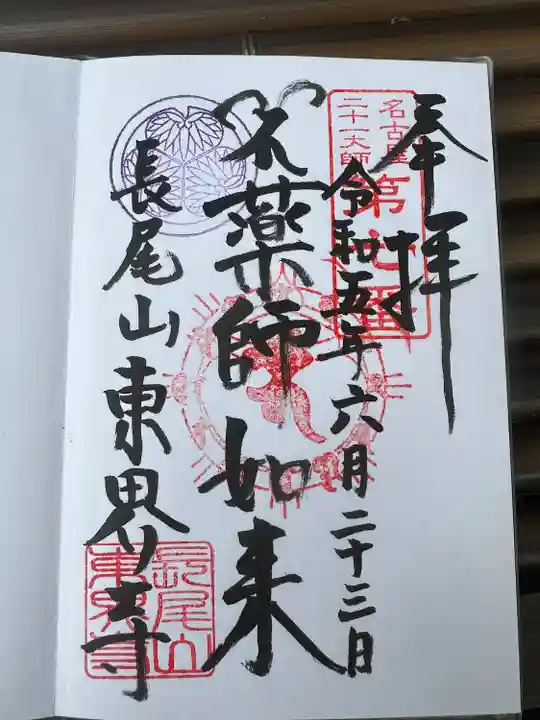 奉拝
名古屋
二十一大師
第
番
令和五年六月二十三日
薬師如来
長尾山東界寺
長尾山
東界寺